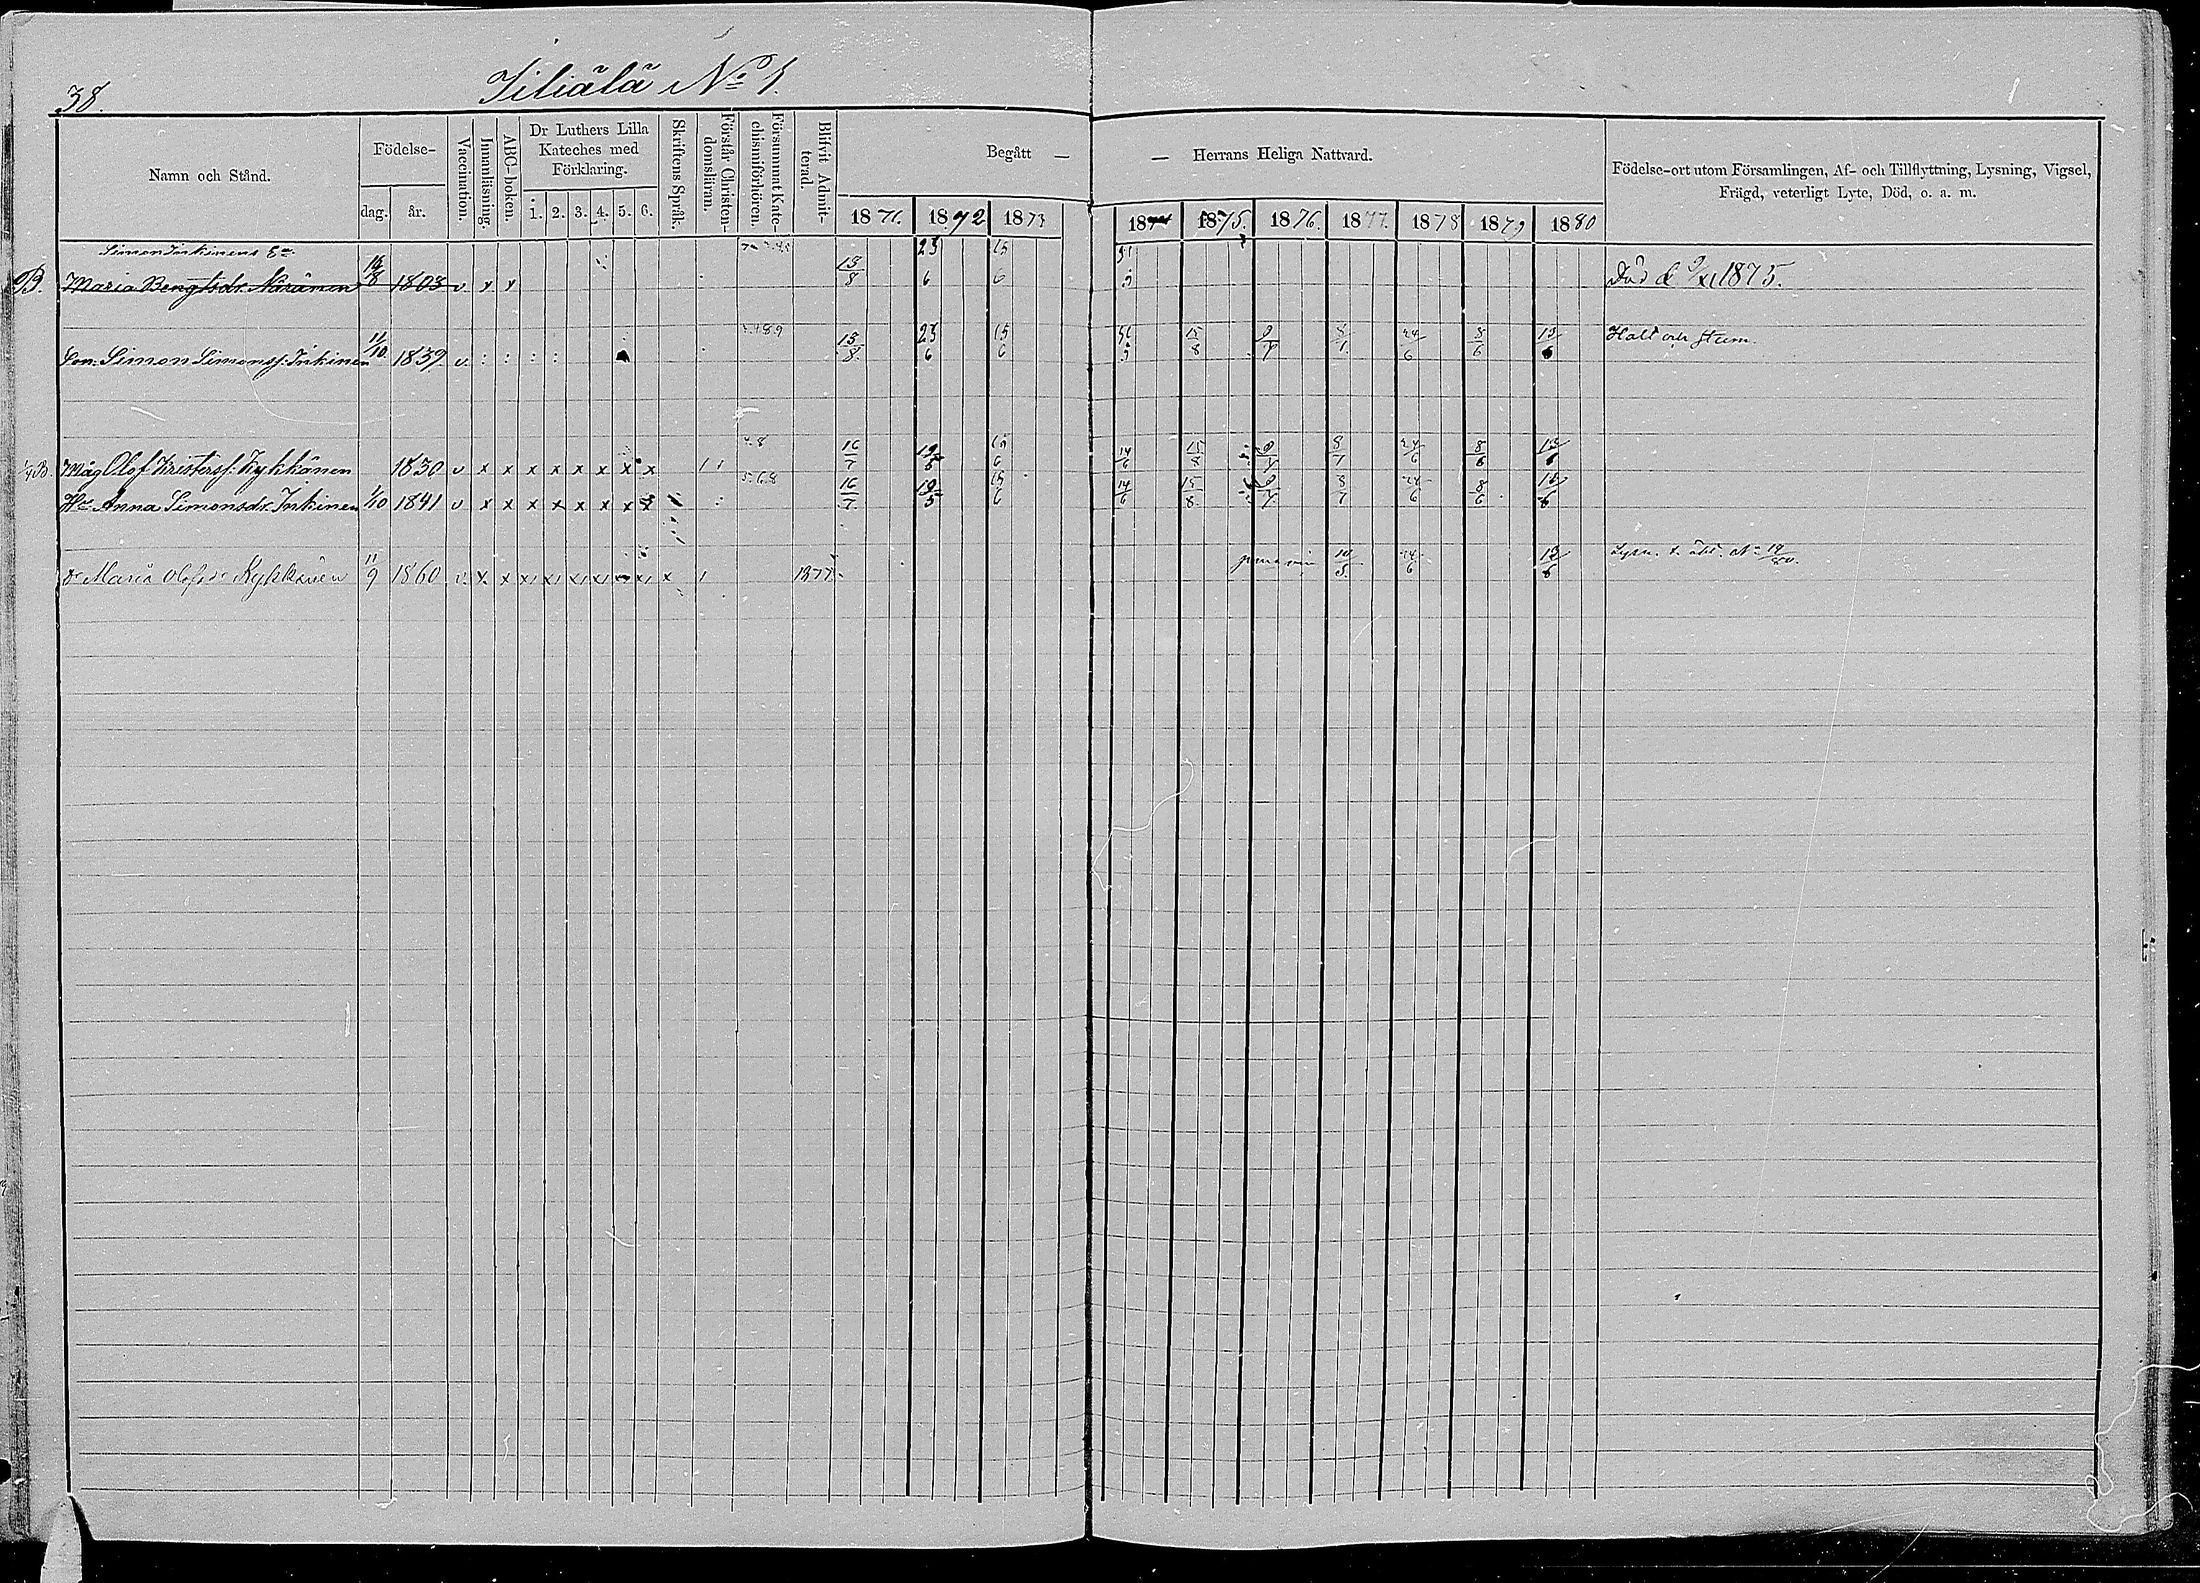 38. Tiliälä No 1.
Namn och Stånd. Födelse- dag. år. Vaccination. Innanläsning. ABC-boken. Dr Luthers Lilla Kateches med Förklaring. 1. 2. 3. 4. 5. 6. Skriftens Språk. Förstår Christendomsläran. Försummat Katechismiförhören. Blifvit Admitterad. Begått — — Herrans Heliga Nattvard. Födelse-ort utom Församlingen, Af- och Tillflyttning, Lysning, Vigsel, Frägd, veterligt Lyte, Död, o. a. m.
1871. 1872 1873 1874 1875. 1876. 1877. 1878 1879 1880
Simon Inkinens Ea
B. Maria Bengtsdr 1803 v. x x 13/8 23/6 15/6 Död d. 9/XI 1875.
Son: Simon Simonss: Inkinen 11/10 1839 v. : : : : 13/8 23/6 15/6 15/8 9/7 8/7 24/6 8/6 13/6 Halt och stum.
Måg Olof Kristerss: Kykkänen 1830 v x x x x x x x x 16/7 19/5 15/6 14/6 15/8 9/7 8/7 24/6 8/6 13/6
Hu Anna Simonsdr Inkinen 1/10 1841 v x x x x x x x x 16/7 19/5 15/6 14/6 15/8 9/7 8/7 24/6 8/6 13/6
dr Maria Olofsdr Kykkänen 11/9 1860 v. x x x x x x x x x 1877 24/6 13/6 Lysn.